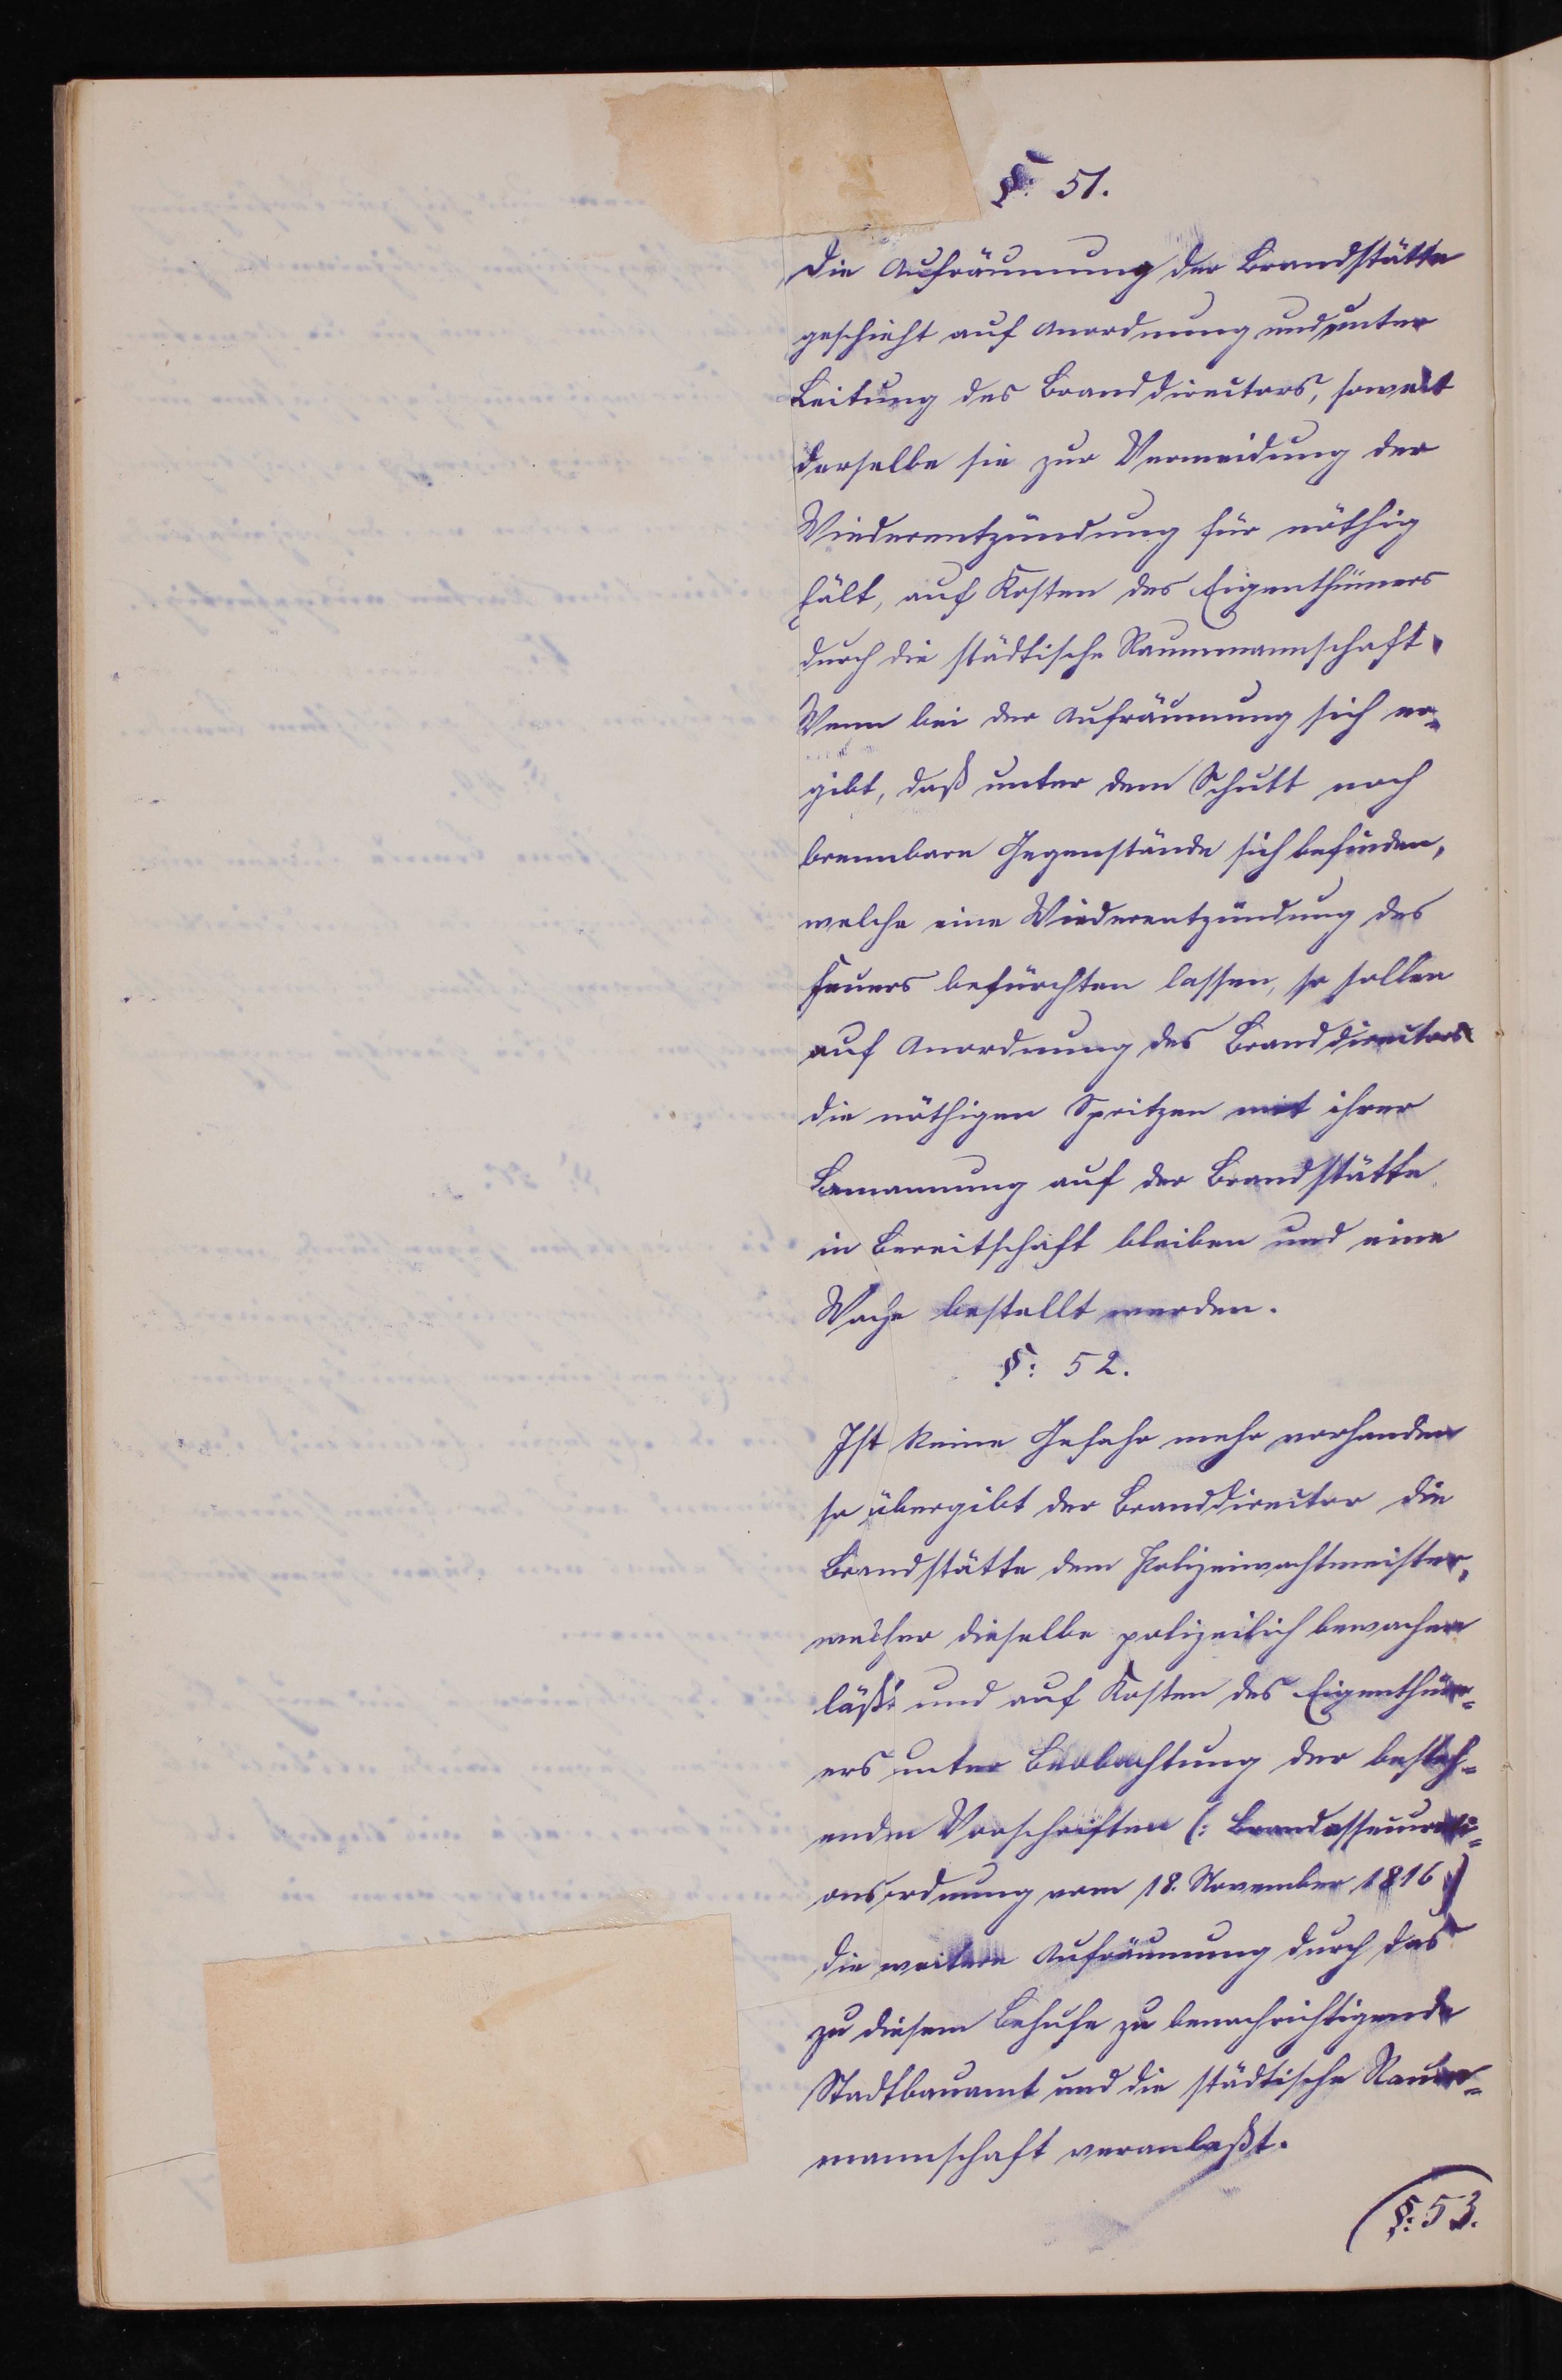 §: 51.
Die Aufräumung der Brandstätte
geschieht auf Anordnung und unter
Leitung des Branddirectors, soweit
derselbe sie zur Vermeidung der
Wiederentzündung für nöthig
hält, auf Kosten des Eigenthümers
durch die städtische Raummannschaft.
Wenn bei der Aufräumung sich er=
gibt, daß unter dem Schutt noch
brennbare Gegenstände sich befinden,
welche eine Wiederentzündung des
Feuers befürchten lassen, so sollen
auf Anordnung des Branddirectors
die nöthigen Spritzen mit ihrer
Bemannung auf der Brandstätte
in Bereitschaft bleiben und eine
Wache bestellt werden.
§: 52.
Ist keine Gefahr mehr vorhanden
so übergibt der Branddirector die
Brandstätte dem Polizeiwachtmeister,
welcher dieselbe polizeilich bewachen
läßt und auf Kosten des Eigenthüm=
ers unter Beobachtung der besteh=
enden Vorschriften (: Brandassecurati=
onsordnung vom 18. November 1816)
die weitere Aufräumung durch das
zu diesem Behufe zu benachrichtigende
Stadtbauamt und die städtische Raum=
mannschaft veranlaßt.
(§: 53.